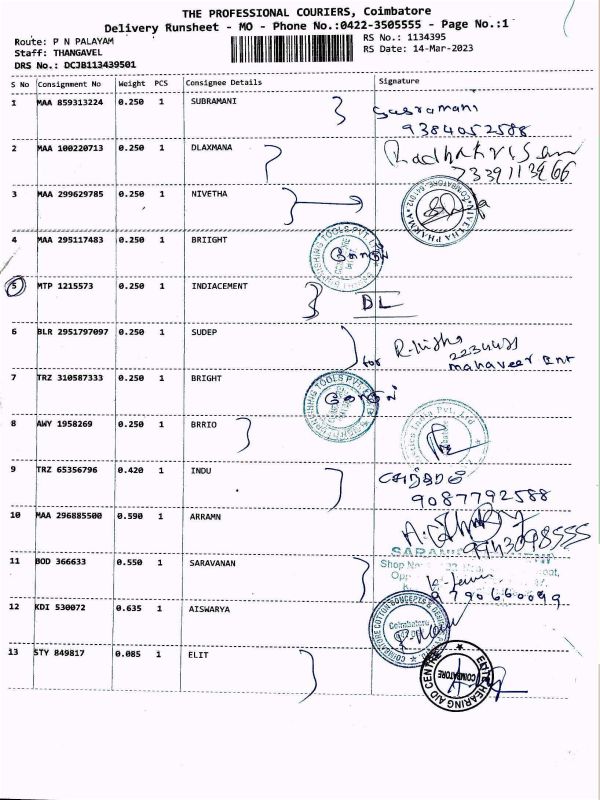 THE PROFESSIONAL COURIERS, Coimbatore
Delivery Runsheet - MO - Phone No.:0422-3505555 - Page No.:1
Route: P N PALAYAM
RS No.: 1134395
Staff: THANGAVEL
RS Date: 14-Mar-2023
DRS No.: DCJB113439501
S No Consignment No Weight PCS Consignee Details Signature
1 MAA 859313224 0.250 1 SUBRAMANI
Subramani
9384052588
2 MAA 100220713 0.250 1 DLAXMANA
Radhakrisan
7339113966
3 MAA 299629785 0.250 1 NIVETHA
NIVETHA PHARMA
4 MAA 295117483 0.250 1 BRIIGHT
5 MTP 1215573 0.250 1 INDIACEMENT
DL
6 BLR 2951797097 0.250 1 SUDEP
for
mahaveer Ent
7 TRZ 310587333 0.250 1 BRIGHT
8 AWY 1958269 0.250 1 BRRIO
9 TRZ 65356796 0.420 1 INDU
9087792588
10 MAA 296885500 0.590 1 ARRAMN
9943098555
11 BOD 366633 0.550 1 SARAVANAN
Shop No
9790660099
12 KDI 530072 0.635 1 AISWARYA
COIMBATORE COTTON CONCEPTS &
Coimbatore
13 STY 849817 0.085 1 ELIT
ELITE HEARING AID CENTRE
COIMBATORE